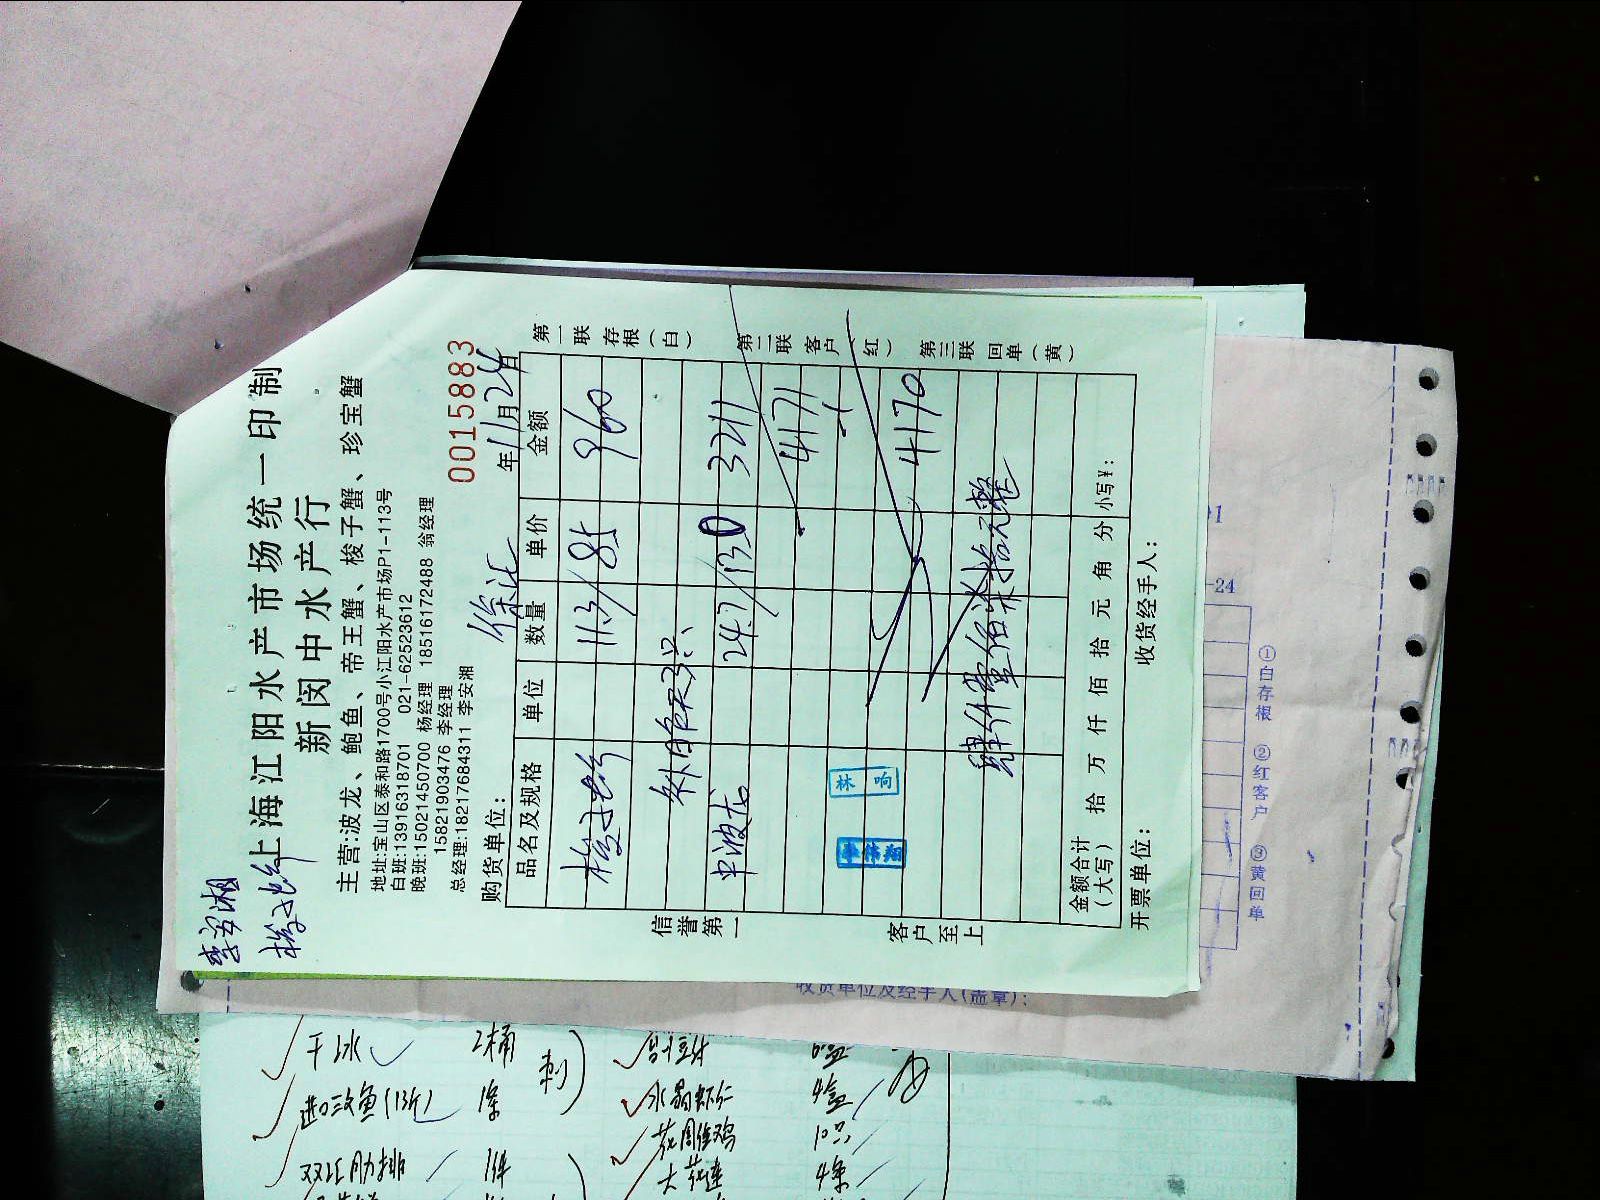 李安湘
梭子蟹
上海江阳水产市场统一印制
新闵中水产行
主营:波龙、鲍鱼、帝王蟹、梭子蟹、珍宝蟹
地址:宝山区泰和路1700号小江阳水产市场P1-113号
白班:13916318701 021-62523612
晚班:15021450700 杨经理 18516172488 翁经理
15821903476 李经理
总经理:18217684311 李安湘
0015883
购货单位: 徐汇 年11月24日
品名及规格 单位 数量 单价 金额
梭子蟹 11.3 / 85 960
中波龙 24.7 / 130 3211
4171
4170
肆仟壹佰柒拾元整
金额合计(大写) 拾 万 仟 佰 拾 元 角 分 小写¥:
开票单位: 收货经手人:
信誉第一
客户至上
第一联存根(白)
第二联客户(红)
第三联回单(黄)
林响
李伟翔
-24
①白存根 ②红客户 ③黄回单
收货单位及经手人(盖章):
干冰 2桶
进口三文鱼(13斤) 1条
刺
水晶虾仁 4盒
花雕醉鸡 10只
4条
1件